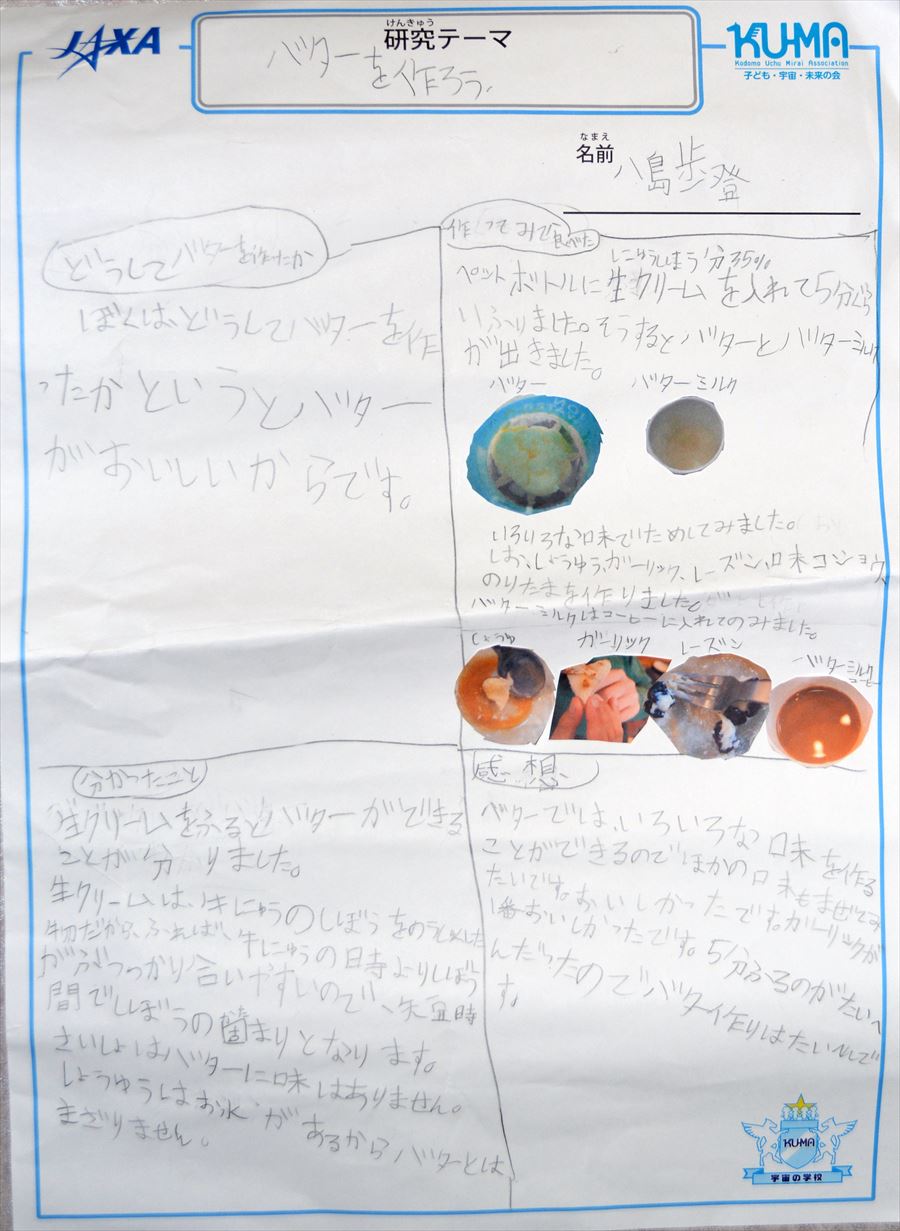 JAXA
けんきゅう
研究テーマ
バターを作ろう。
KU-MA
Kodomo Uchu Mirai Association
子ども・宇宙・未来の会
なまえ
名前 八島歩登
どうしてバターを作ったか
ぼくは、どうしてバターを作
ったかというとバター
がおいしいからです。
作ってみて食べた
にゅうしぼう分35%
ペットボトルに生クリームを入れて5分ぐら
いふりました。そうするとバターとバターミルク
が出きました。
バター バターミルク
いろいろな味でためしてみました。
しお、しょうゆう、ガーリック、レーズン、味コショウ、
のりたまを作りました。
バターミルクはコーヒーに入れてのみました。
しょうゆ ガーリック レーズン バターミルク
コーヒー
分かったこと
生クリームをふるとバターができる
ことが分りました。
生クリームは、牛にゅうのしぼうをのうしゅくした
物だから、ふれば、牛にゅうの時よりしぼう
がぶつかり合いやすいので、矢豆時
間でしぼうの固まりとなります。
さいしょはバターに味はありません。
しょうゆうはお水があるからバターとは
まざりません。
感想
バターでは、いろいろな味を作る
ことができるのでほかの味もまぜてみ
たいです。おいしかったです。ガーリックが
1番おいしかったです。5分ふるのがたいへ
んだったのでバター作りはたいへんで
す。
KU-MA
宇宙の学校